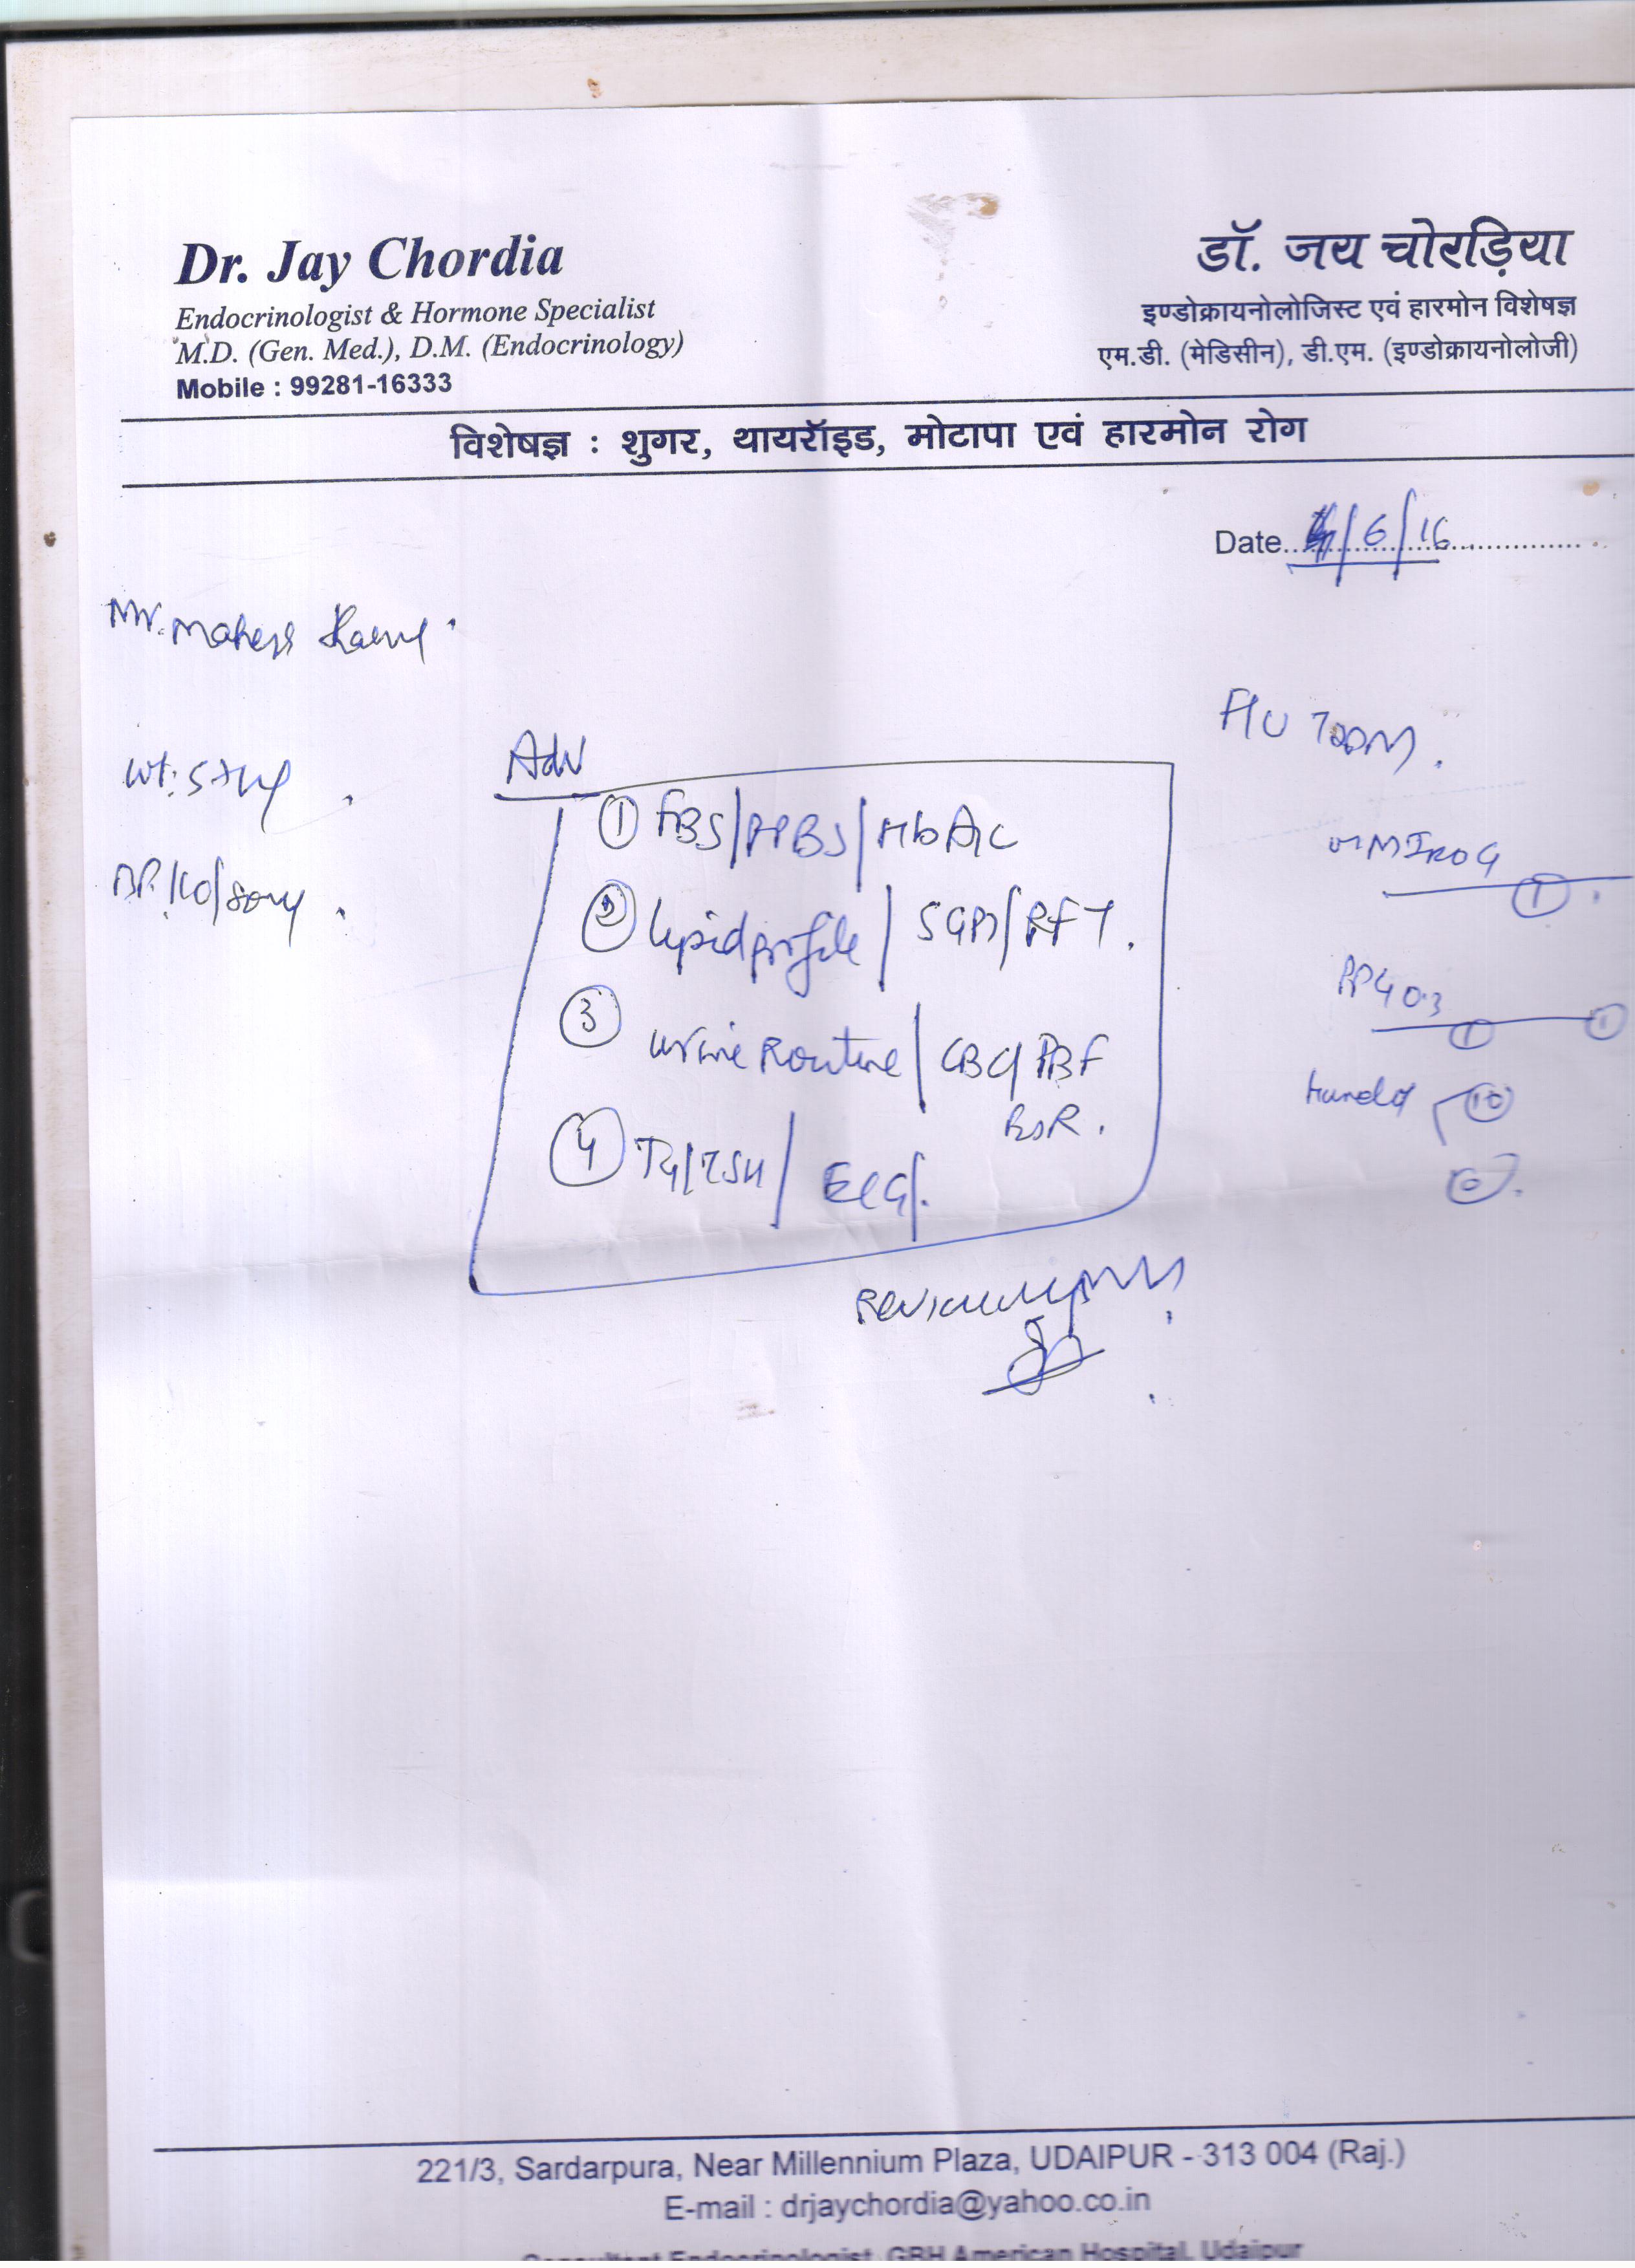 Dr. Jay Chordia
Endocrinologist & Hormone Specialist
M.D. (Gen. Med.), D.M. (Endocrinology)
Mobile : 99281-16333
डॉ. जय चोरड़िया
इण्डोक्रायनोलोजिस्ट एवं हारमोन विशेषज्ञ
एम.डी. (मेडिसीन), डी.एम. (इण्डोक्रायनोलोजी)
विशेषज्ञ : शुगर, थायरॉइड, मोटापा एवं हारमोन रोग
Date /6/16
Mr. Mahesh
F/U T2DM.
Wt:
Adv
① FBS/PPBS/HbA1c
② Lipid profile / SGPT/RFT.
③ Urine Routine / CBC/PBF
BSR.
④ T4/TSH / ECG.
①
PPG 0.3
① ①
⑩
221/3, Sardarpura, Near Millennium Plaza, UDAIPUR - 313 004 (Raj.)
E-mail : drjaychordia@yahoo.co.in
Consultant Endocrinologist, GBH American Hospital, Udaipur